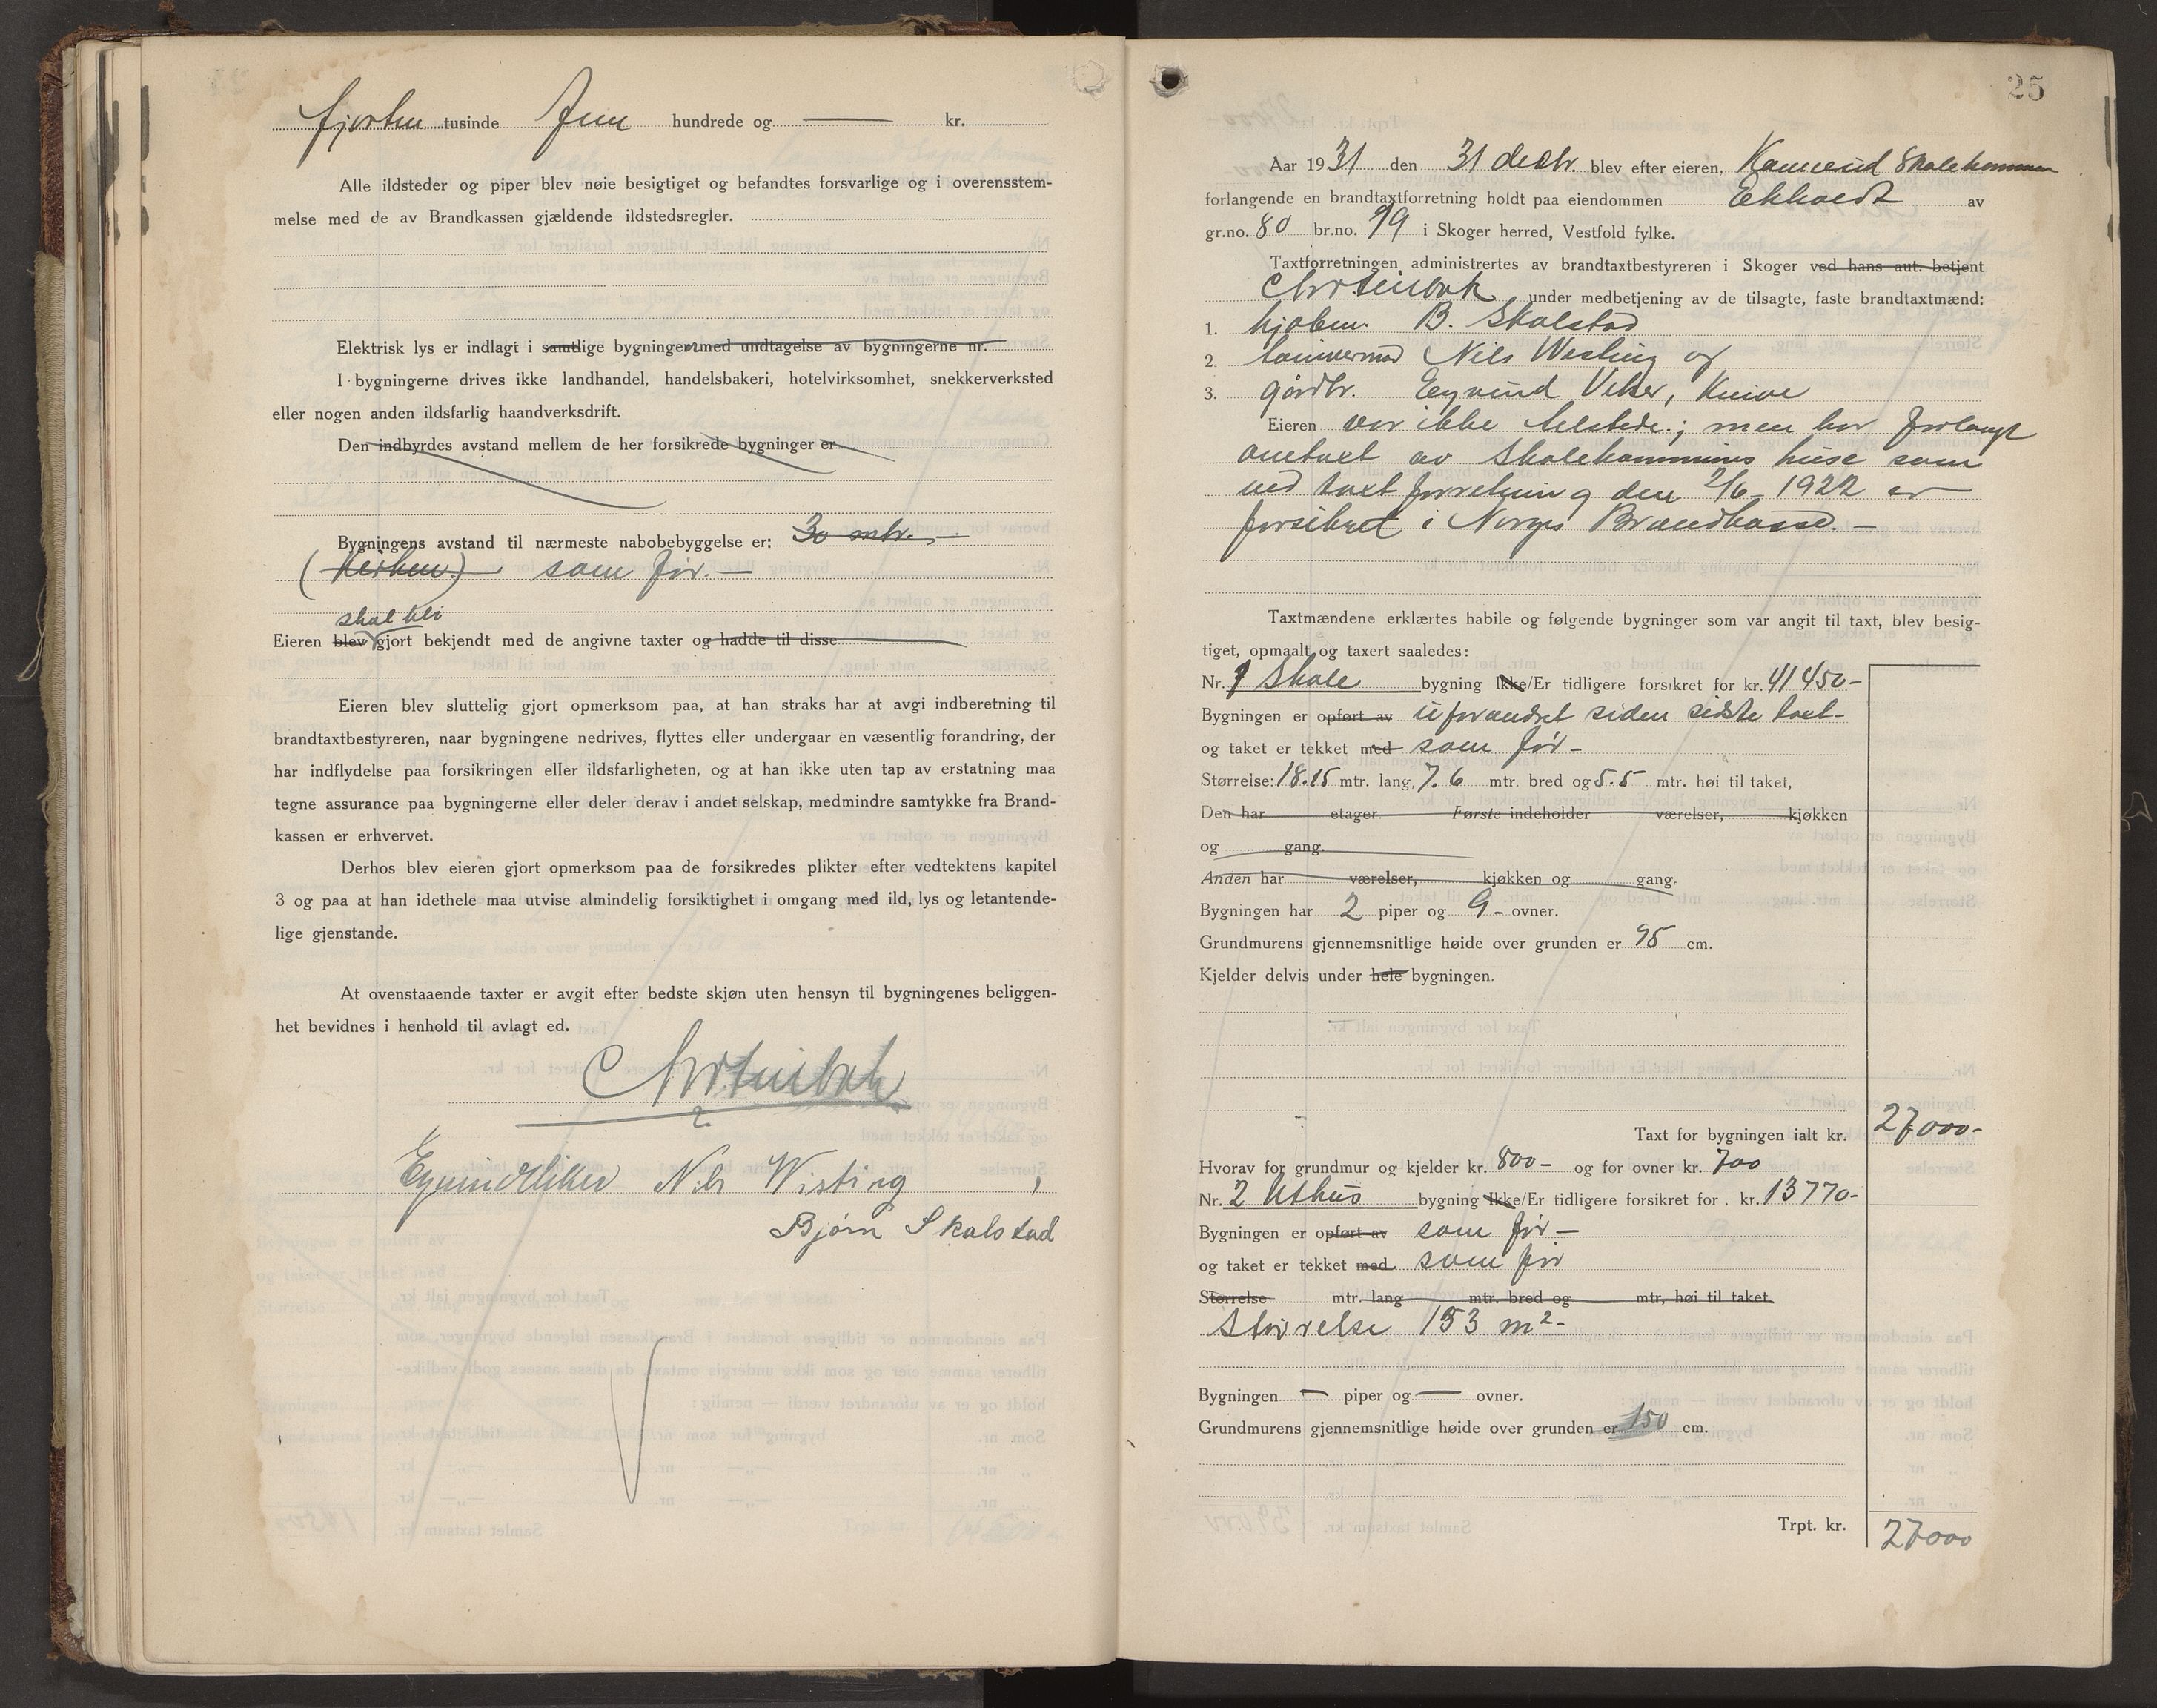 fjorten tusinde fem hundrede og — kr.
Alle ildsteder og piper blev nøie besigtiget og befandtes forsvarlige og i overensstem-
melse med de av Brandkassen gjældende ildstedsregler.
Elektrisk lys er indlagt i samtlige bygningen med undtagelse av bygningerne nr.
I bygningerne drives ikke landhandel, handelsbakeri, hotelvirksomhet, snekkerverksted
eller nogen anden ildsfarlig haandverksdrift.
Den indbyrdes avstand mellem de her forsikrede bygninger er
Bygningens avstand til nærmeste nabobebyggelse er: 30 mtr. —
(Kirken) som før. —
skal bli
Eieren blev gjort bekjendt med de angivne taxter og hadde til disse
Eieren blev sluttelig gjort opmerksom paa, at han straks har at avgi indberetning til
brandtaxtbestyreren, naar bygningene nedrives, flyttes eller undergaar en væsentlig forandring, der
har indflydelse paa forsikringen eller ildsfarligheten, og at han ikke uten tap av erstatning maa
tegne assurance paa bygningerne eller deler derav i andet selskap, medmindre samtykke fra Brand-
kassen er erhvervet.
Derhos blev eieren gjort opmerksom paa de forsikredes plikter efter vedtektens kapitel
3 og paa at han idethele maa utvise almindelig forsiktighet i omgang med ild, lys og letantende-
lige gjenstande.
At ovenstaaende taxter er avgit efter bedste skjøn uten hensyn til bygningenes beliggen-
het bevidnes i henhold til avlagt ed.
Nils Wisting
Bjørn Skalstad
25
Aar 1931 den 31 decbr. blev efter eieren, Skolekommun
forlangende en brandtaxtforretning holdt paa eiendommen Ekholdt av
gr.no. 80 br.no. 79 i Skoger herred, Vestfold fylke.
Taxtforretningen administrertes av brandtaxtbestyreren i Skoger ved hans aut. betjent
under medbetjening av de tilsagte, faste brandtaxtmænd:
1. kjøbm. B. Skalstad
2. tømmermd Nils Wisting og
3. gårdbr. Eyvind Viker, Knive
Eieren var ikke tilstede; men har forlangt
omtaxt av Skolekommunens huse som
ved taxtforretning den 2/6 - 1922 er
forsikret i Norges Brandkasse. —
Taxtmændene erklærtes habile og følgende bygninger som var angit til taxt, blev besig-
tiget, opmaalt og taxert saaledes:
Nr. 1 Skole bygning Ikke/Er tidligere forsikret for kr. 41450-
Bygningen er opført av uforandret siden sidste taxt-
og taket er tekket med som før-
Størrelse: 18.15 mtr. lang, 7.6 mtr. bred og 5.5 mtr. høi til taket,
Den har etager. Første indeholder værelser, kjøkken
og gang.
Anden har værelser, kjøkken og gang.
Bygningen har 2 piper og 9- ovner.
Grundmurens gjennemsnitlige høide over grunden er 95 cm.
Kjelder delvis under hele bygningen.
Taxt for bygningen ialt kr. 27000-
Hvorav for grundmur og kjelder kr. 800- og for ovner kr. 700
Nr. 2 Uthus bygning Ikke/Er tidligere forsikret for . kr. 13770-
Bygningen er opført av som før —
og taket er tekket med som før
Størrelse mtr. lang mtr. bred og mtr, høi til taket.
Størrelse 153 m²-
Bygningen — piper og — ovner.
Grundmurens gjennemsnitlige høide over grunden er 150 cm.
Trpt. kr. 27000